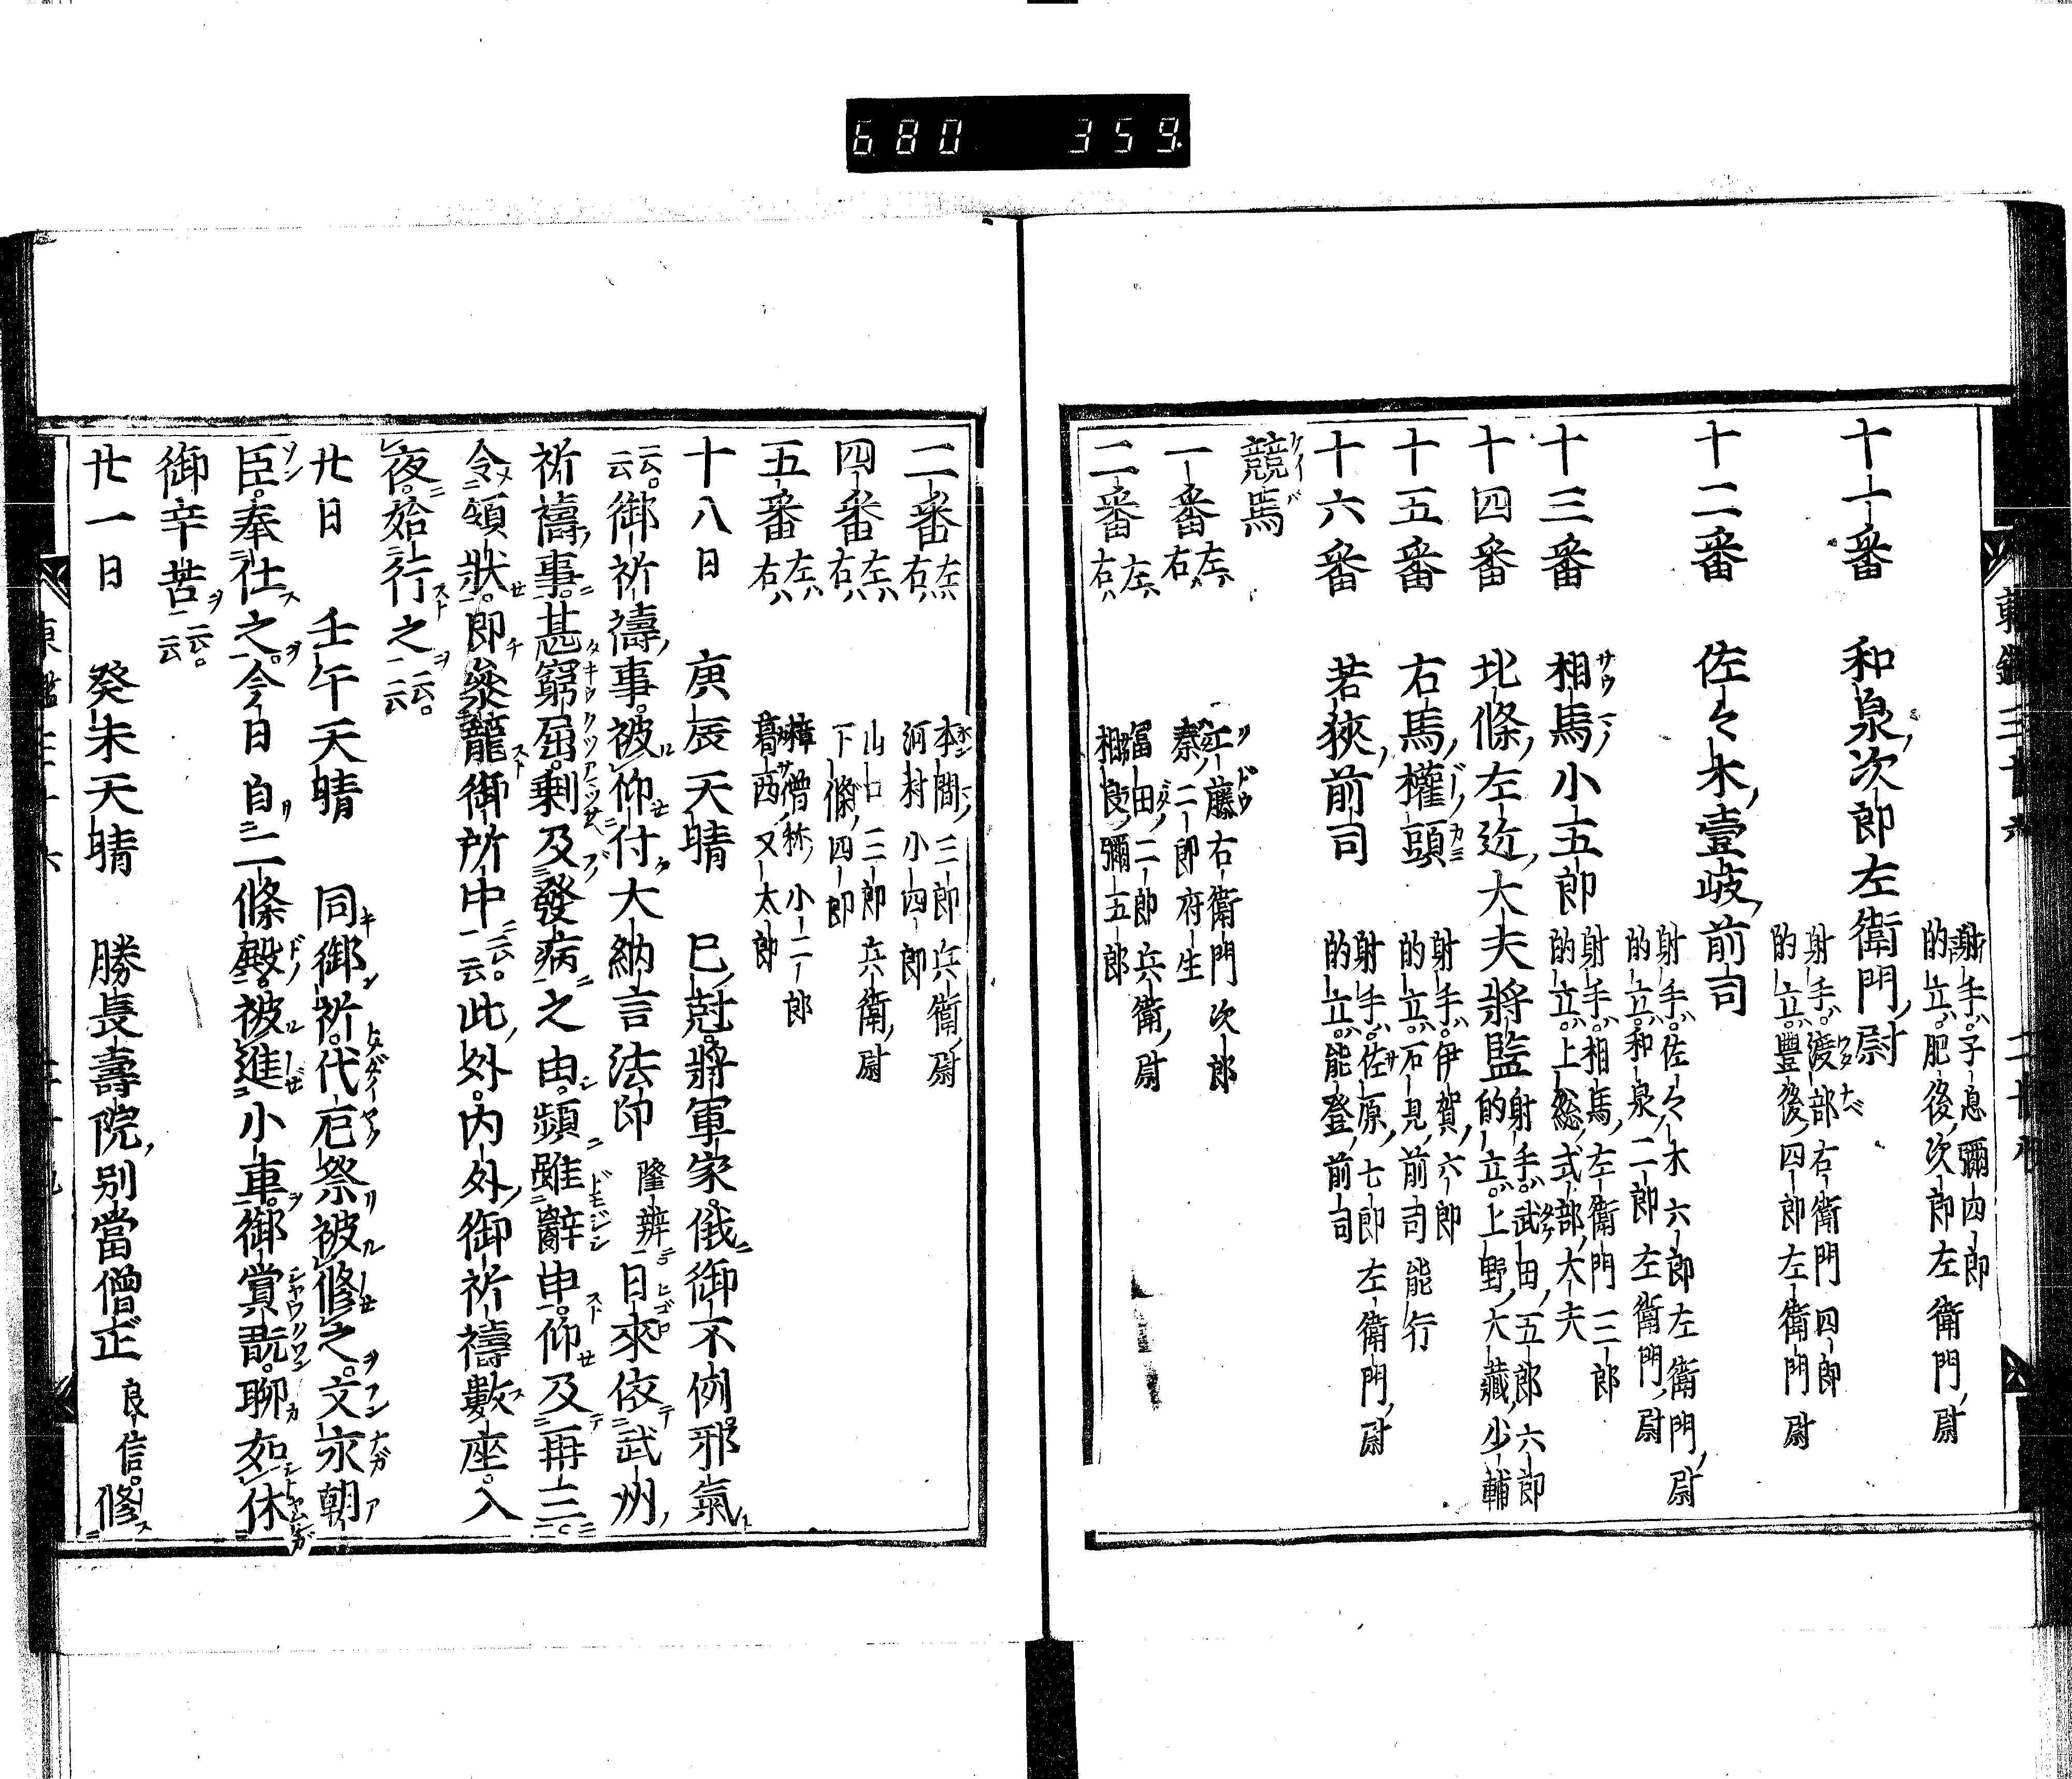 680 359
射手ハ子息彌四郎
的立ハ肥後次郎左衛門尉
十一番 和泉次郎左衛門尉
射手ハ渡部右衛門四郎
的立ハ豐後四郎左衛門尉
十二番 佐々木壹岐前司
射手ハ佐々木六郎左衛門尉
的立ハ和泉二郎左衛門尉
十三番 相馬小五郎
射手ハ相馬左衛門三郎
的立ハ上総式部大夫
十四番 北條左近大夫將監
射手ハ武田五郎六郎
的立ハ上野大藏少輔
十五番 右馬權頭
射手ハ伊賀六郎
的立ハ石見前司能行
十六番 若狹前司
射手ハ佐原七郎左衛門尉
的立ハ能登前司
競馬
一番 左ハ 江藤右衛門次郎
右ハ 秦二郎府生
二番 左ハ 冨田二郎兵衛尉
右ハ 相良彌五郎
三番 左ハ 本間三郎兵衛尉
右ハ 河村小四郎
四番 左ハ 山口三郎兵衛尉
右ハ 下條四郎
五番 左ハ 僧称小二郎
右ハ 葛西又太郎
十八日 庚辰天晴 巳尅將軍家俄御不例邪氣
云云御祈禱事被仰付大納言法印隆辨日來依武州
祈禱事甚窮屈剰及發病之由頻雖辭申仰及再三
令領狀即參籠御所中云云此外内外御祈禱數座入
夜始行之云云
廿日 壬午天晴 同御祈代厄祭被修之文永朝
臣奉仕之今日自二條殿被進小車御賞翫聊如休
御辛苦云云
廿一日 癸未天晴 勝長壽院別當僧正良信修